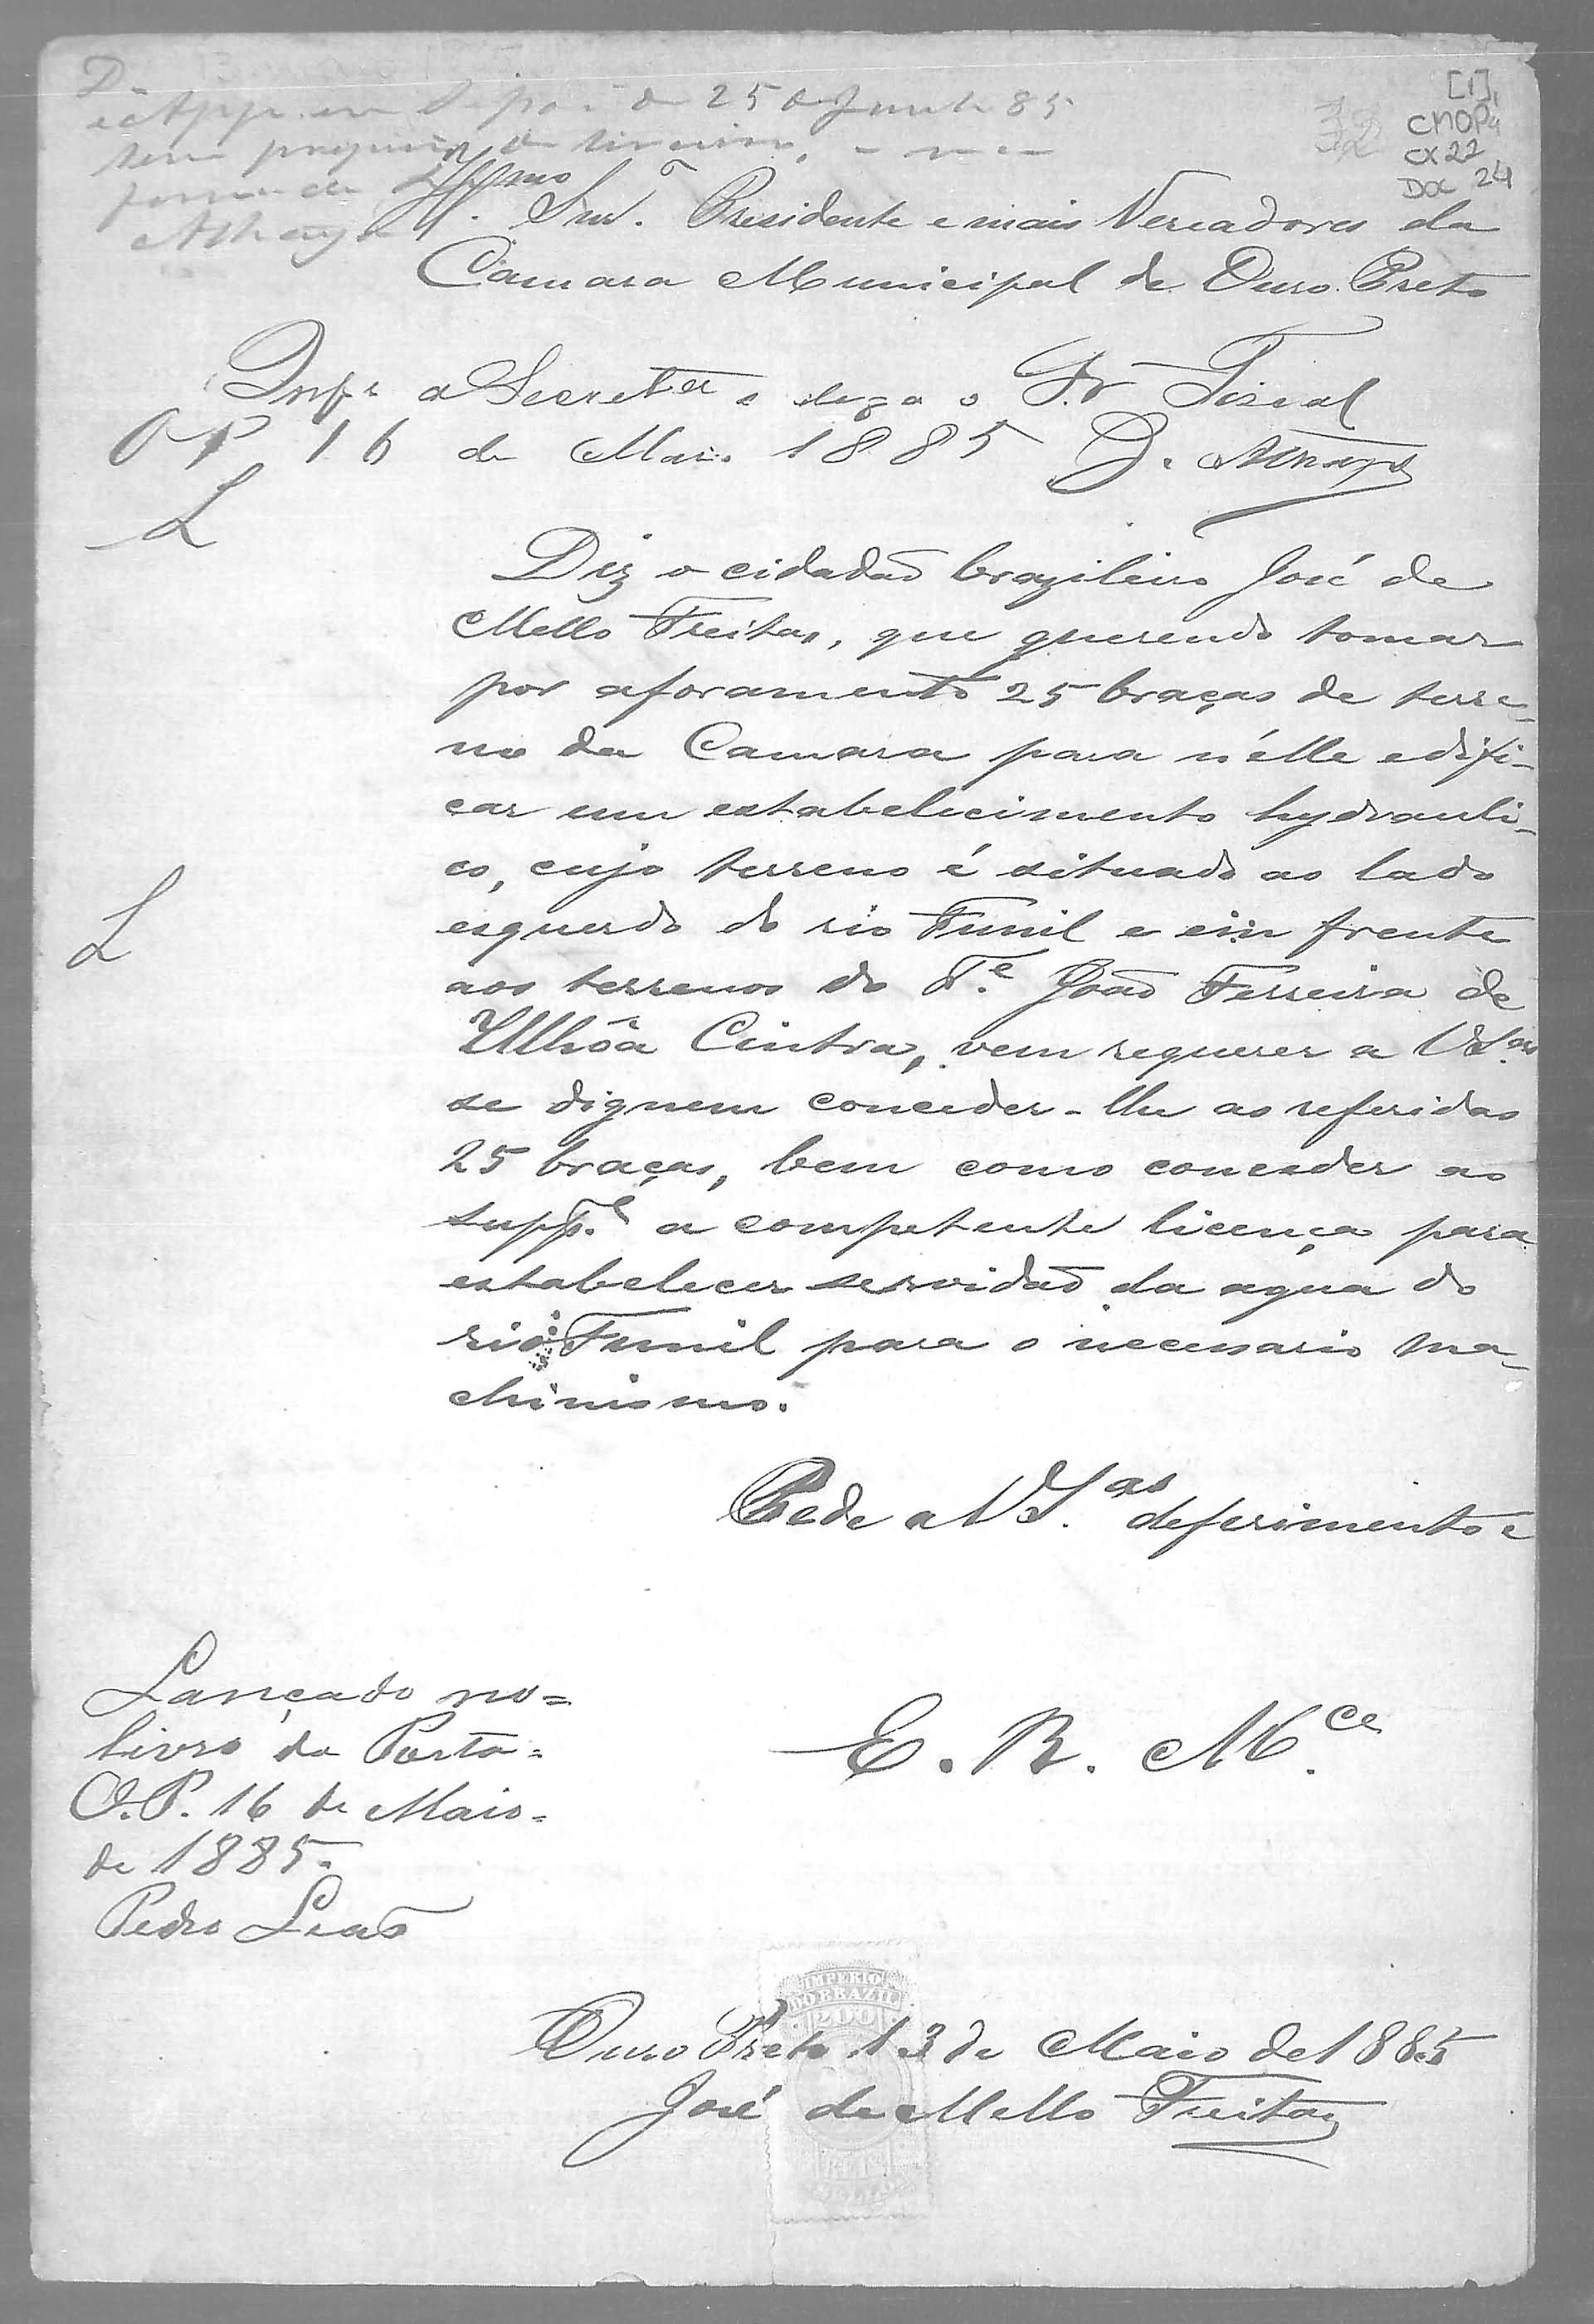 [1]
CMOP
CX 22
DOC 24
25 de Junho 85
Illmo Snr. Presidente e mais Vereadores da
Camara Municipal de Ouro Preto
a Secret e diga o Sr Fiscal
OP 16 de Maio 1885
L
Diz o cidadaõ brazileiro José de
Mello Freitas, que querendo tomar
por aforamento 25 braças de terre-
no da Camara para n'elle edifi-
car um estabelecimento hydrauli-
co, cujo terreno é situado ao lado
L
esquerdo do rio Funil e em frente
aos terrenos do Te. Joaõ Ferreira de
Ulhôa Cintra, vem requerer a VSas
se dignem conceder-lhe as referidas
25 braças, bem como conceder ao
suppe. a competente licença para
estabelecer servidaõ da agua do
rio Funil para o necessario ma-
chinismo.
Pede a VS.as deferimento e
E. R. Mce.
Lançado no=
livro da Porta=
O.P. 16 de Maio=
de 1885.
Pedro Leaõ
IMPERIO
DO BRAZIL
200
Ouro Preto 13 de Maio de 1885
José de Mello Freitas
REIS